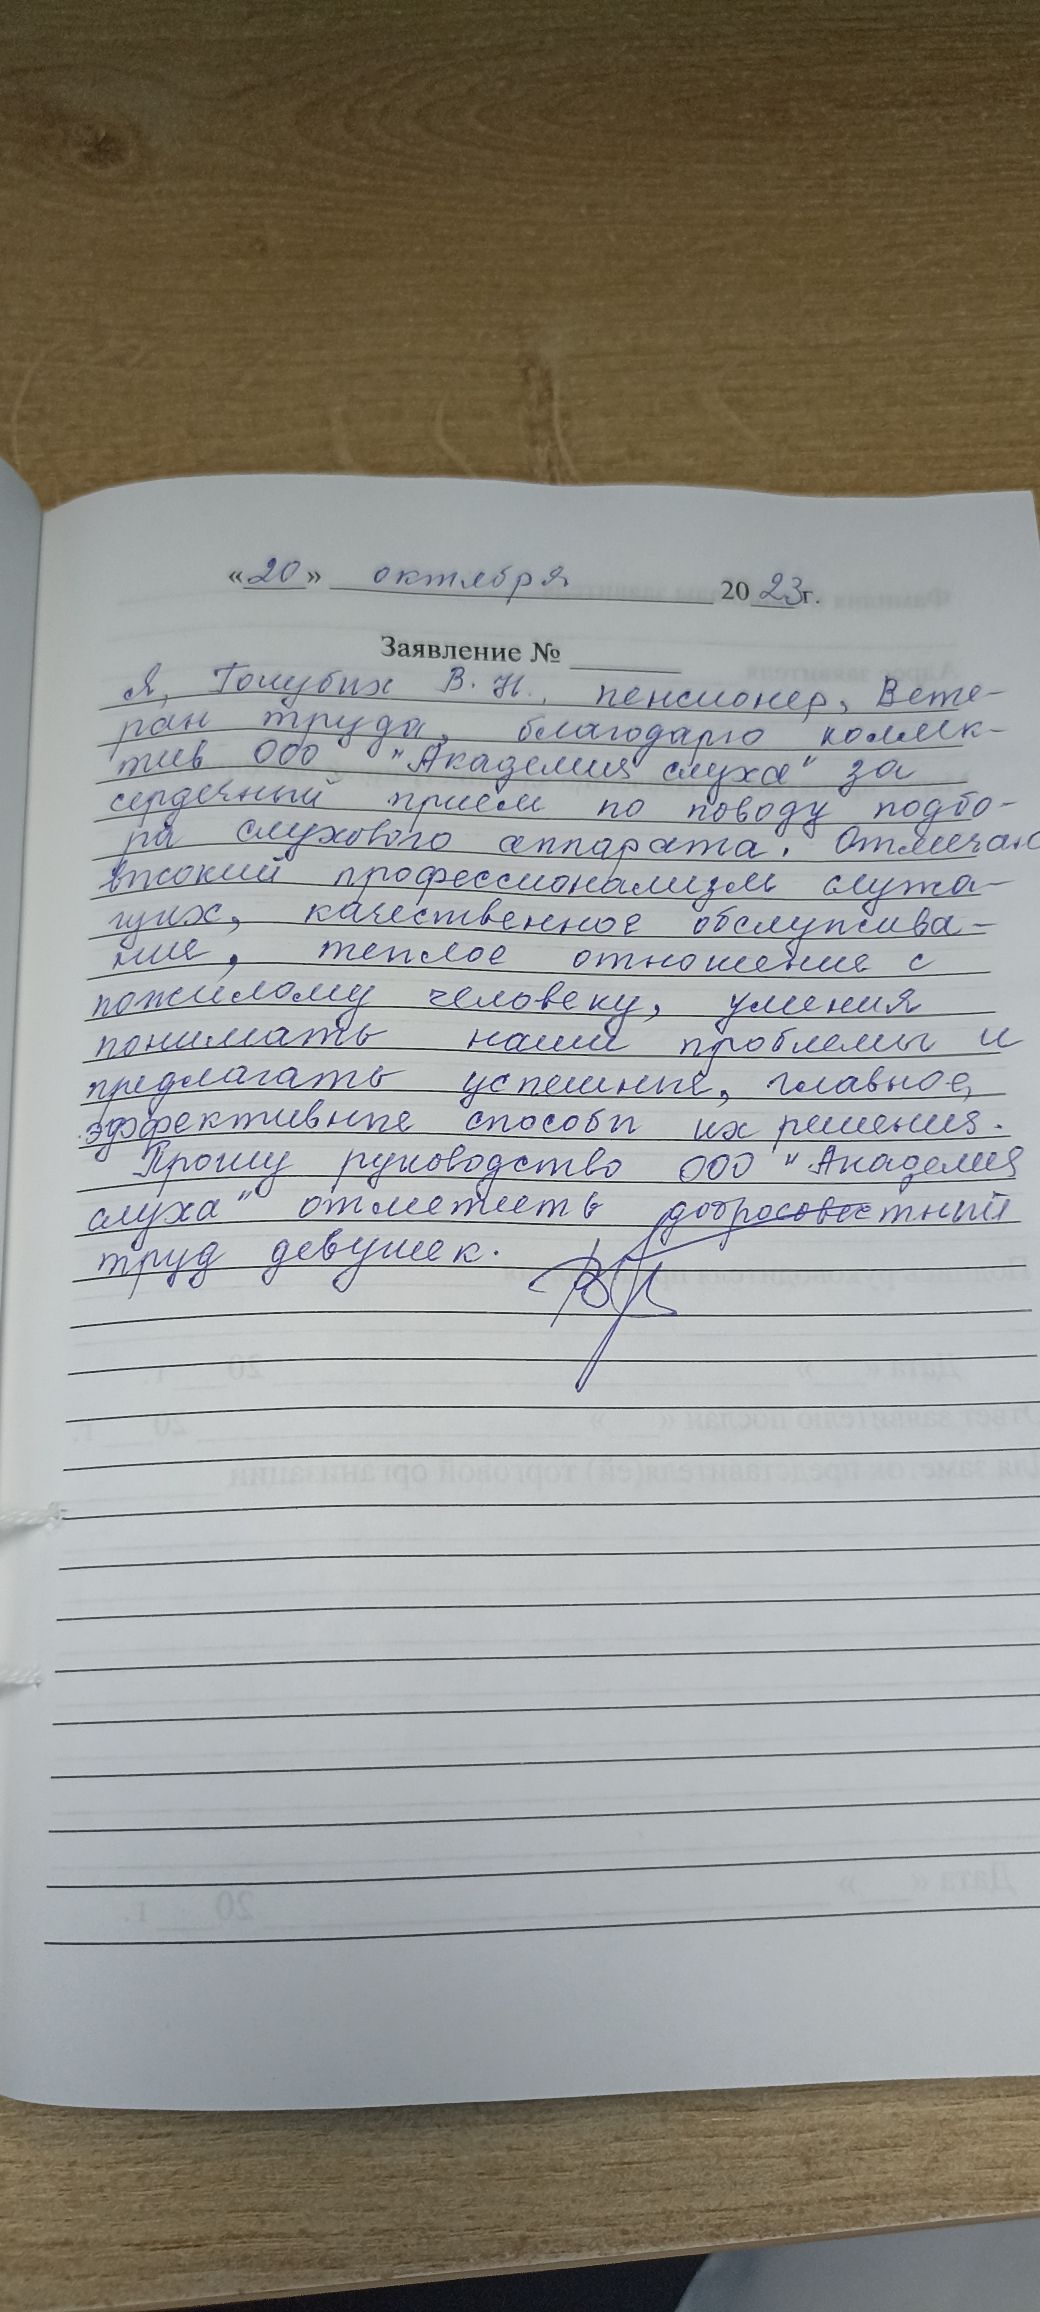 «20» октября 2023г.
Заявление № ______
Я, Голубих В. Н., пенсионер, Вете-
ран труда, благодарю коллек-
тив ООО "Академия слуха" за
сердечный прием по поводу подбо-
ра слухового аппарата. Отмечаю
высокий профессионализм служа-
щих, качественное обслужива-
ние, теплое отношение с
пожилому человеку, умения
понимать наши проблемы и
предлагать успешные, главное,
эффективные способы их решения.
Прошу руководство ООО "Академия
слуха" отметить добросовестный
труд девушек.